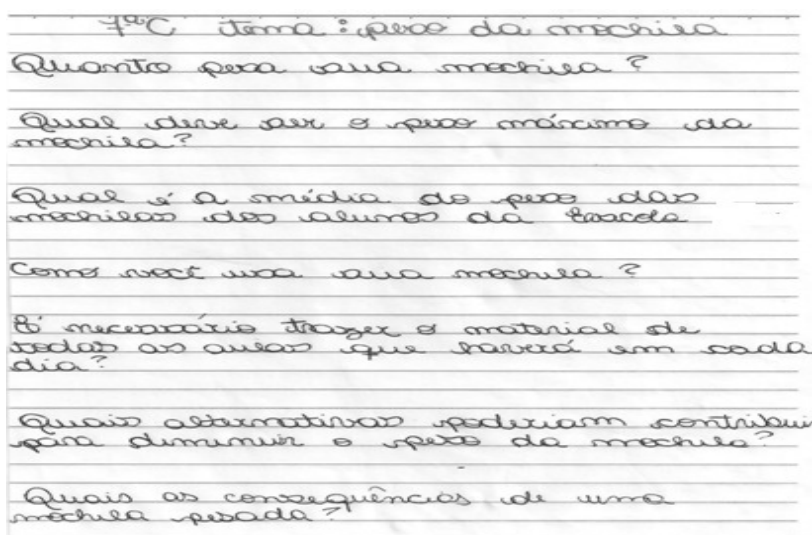 7ªC tema: peso da mochila
Quanto pesa sua mochila?
Qual deve ser o peso máximo da
mochila?
Qual é a média do peso das
mochilas dos alunos da Escola
Como você usa sua mochila?
É necessário trazer o material de
todas as aulas que haverá em cada
dia?
Quais alternativas poderiam contribui
para diminuir o peso da mochila?
Quais as consequências de uma
mochila pesada?